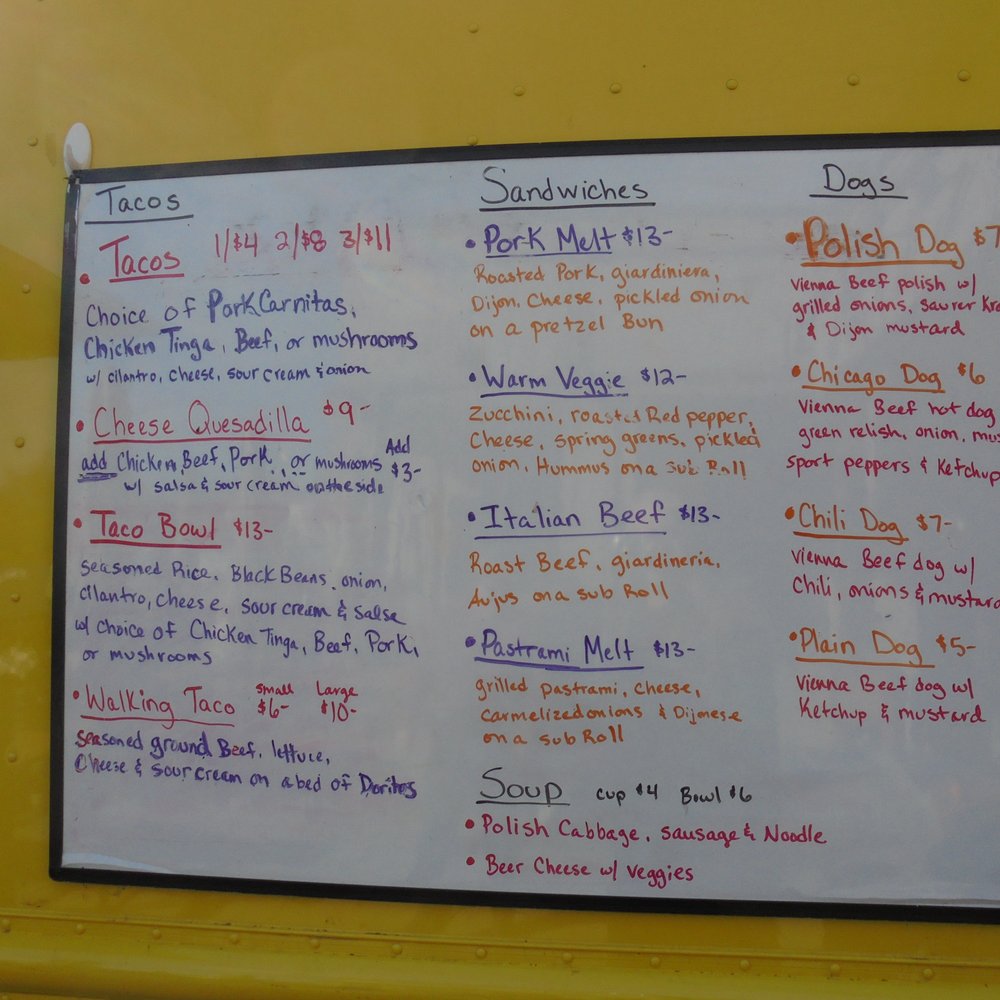 Tacos
• Tacos 1/$4 2/$8 3/$11
Choice of Pork Carnitas,
Chicken Tinga, Beef, or mushrooms
w/ cilantro, cheese, sour cream & onion
• Cheese Quesadilla $9-
add Chicken, Beef, Pork, or mushrooms Add $3-
w/ salsa & sour cream on the side
• Taco Bowl $13-
seasoned Rice, Black Beans, onion,
cilantro, cheese, sour cream & salsa
w/ choice of Chicken Tinga, Beef, Pork,
or mushrooms
• Walking Taco small $6- Large $10-
seasoned ground Beef, lettuce,
Cheese & sour cream on a bed of Doritos
Sandwiches
• Pork Melt $13-
Roasted Pork, giardiniera,
Dijon, Cheese, pickled onion
on a pretzel Bun
• Warm Veggie $12-
Zucchini, roasted Red pepper,
Cheese, spring greens, pickled
onion, Hummus on a Sub Roll
• Italian Beef $13-
Roast Beef, giardineria,
Aujus on a sub Roll
• Pastrami Melt $13-
grilled pastrami, cheese,
carmelized onions & Dijonese
on a sub Roll
Soup cup $4 Bowl $6
• Polish Cabbage, sausage & Noodle
• Beer Cheese w/ veggies
Dogs
• Polish Dog $7
Vienna Beef polish w/
grilled onions, saurer Kra
& Dijon mustard
• Chicago Dog $6
Vienna Beef hot dog
green relish, onion, mus
sport peppers & Ketchup
• Chili Dog $7-
Vienna Beef dog w/
Chili, onions & mustard
• Plain Dog $5-
Vienna Beef dog w/
Ketchup & mustard